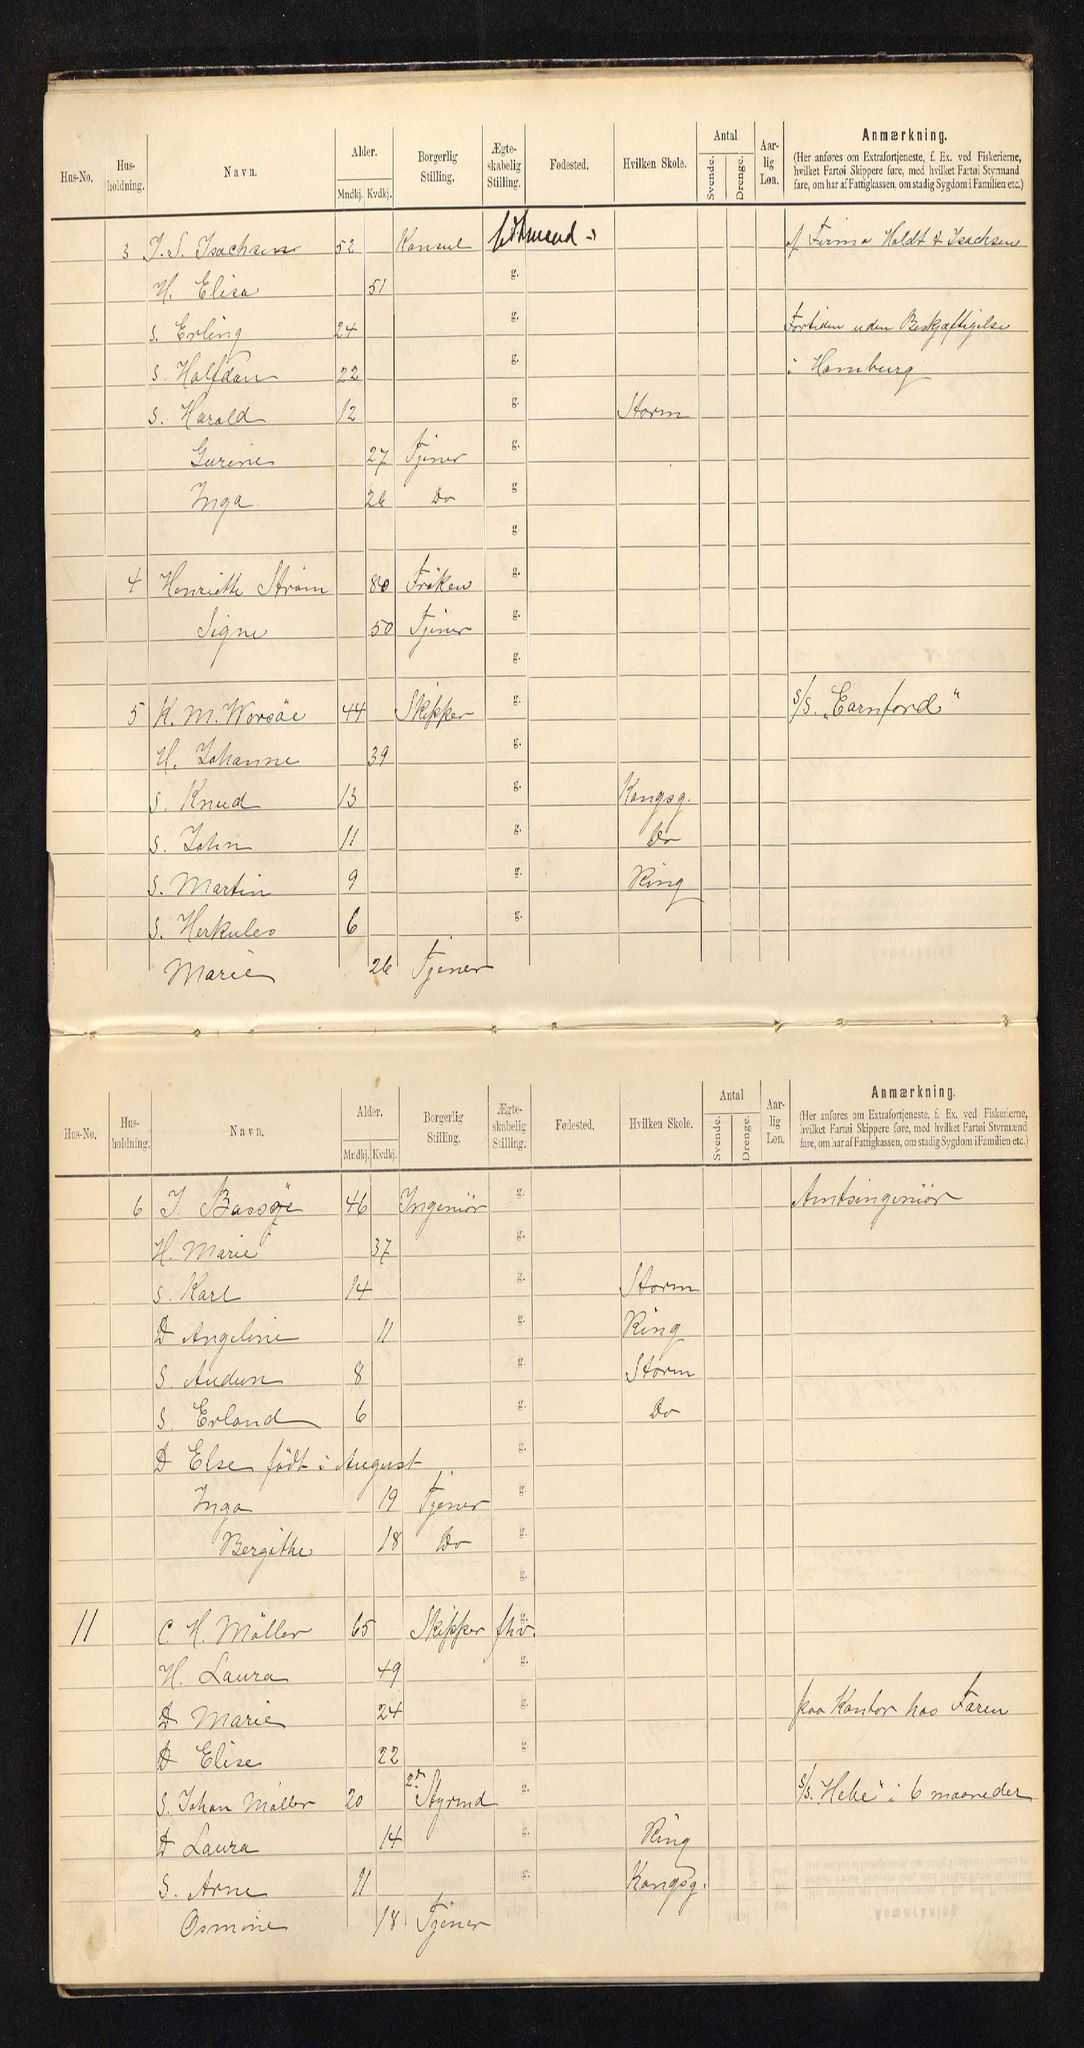 Hus-No. Hus-holdning. Navn. Alder. Mndkj. Kvdkj. Borgerlig Stilling. Ægte-skabelig Stilling. Fødested. Hvilken Skole. Antal Svende. Drenge. Aar-lig Løn. Anmærkning.
(Her anføres om Extrafortjeneste, f. Ex. ved Fiskerierne,
hvilket Fartøi Skippere føre, med hvilket Fartøi Styrmand
fare, om har af Fattigkassen, om stadig Sygdom i Familien etc.)
3 J. S. Isachsen 52 Konsul af Firma Holdt & Isachsen
H. Elisa 51 g.
S. Erling 24 g. Fortiden uden Beskjæftigelse
S. Halfdan 22 g. i Hamburg
S. Harald 12 g. Storm
Gurine 27 Tjener g.
Inga 26 Do g
g
4 Henriette Strøm 80 Frøken g.
Signe 50 Tjener g.
g.
5 K. M. Worsöe 44 Skipper g. s/s. „Earnford"
H. Johanne 39 g.
S. Knud 13 g. Kongsg.
S. John 11 g. Do
S. Martin 9 g. Ring
S. Herkules 6 g.
Marie 26 Tjener
Hus-No. Hus-holdning. Navn. Alder. Mndkj. Kvdkj. Borgerlig Stilling. Ægte-skabelig Stilling. Fødested. Hvilken Skole. Antal Svende. Drenge. Aar-lig Løn. Anmærkning.
(Her anføres om Extrafortjeneste, f. Ex. ved Fiskerierne,
hvilket Fartøi Skippere føre, med hvilket Fartøi Styrmænd
fare, om har af Fattigkassen, om stadig Sygdom i Familien etc.)
6 J. Bassøe 46 Ingeniör g. Amtsingeniör
H. Marie 37 g.
S. Karl 14 g. Storm
D Angeline 11 g. Ring
S. Audun 8 g. Storm
S. Erland 6 g. Do
D Else født i August g.
Inga 19 Tjener g
Bergithe 18 Do g.
g.
11 C. H. Möller 65 Skipper fhv. g.
H. Laura 49 g.
D Marie 24 g. paa Kontor hos Faren
D Elise 22 g.
S. Johan Möller 20 2n Styrmd g. s/s. „Hebe" i 6 maaneder
D Laura 14 g. Ring
S. Arne 11 g. Kongsg.
Osmine 18 Tjener